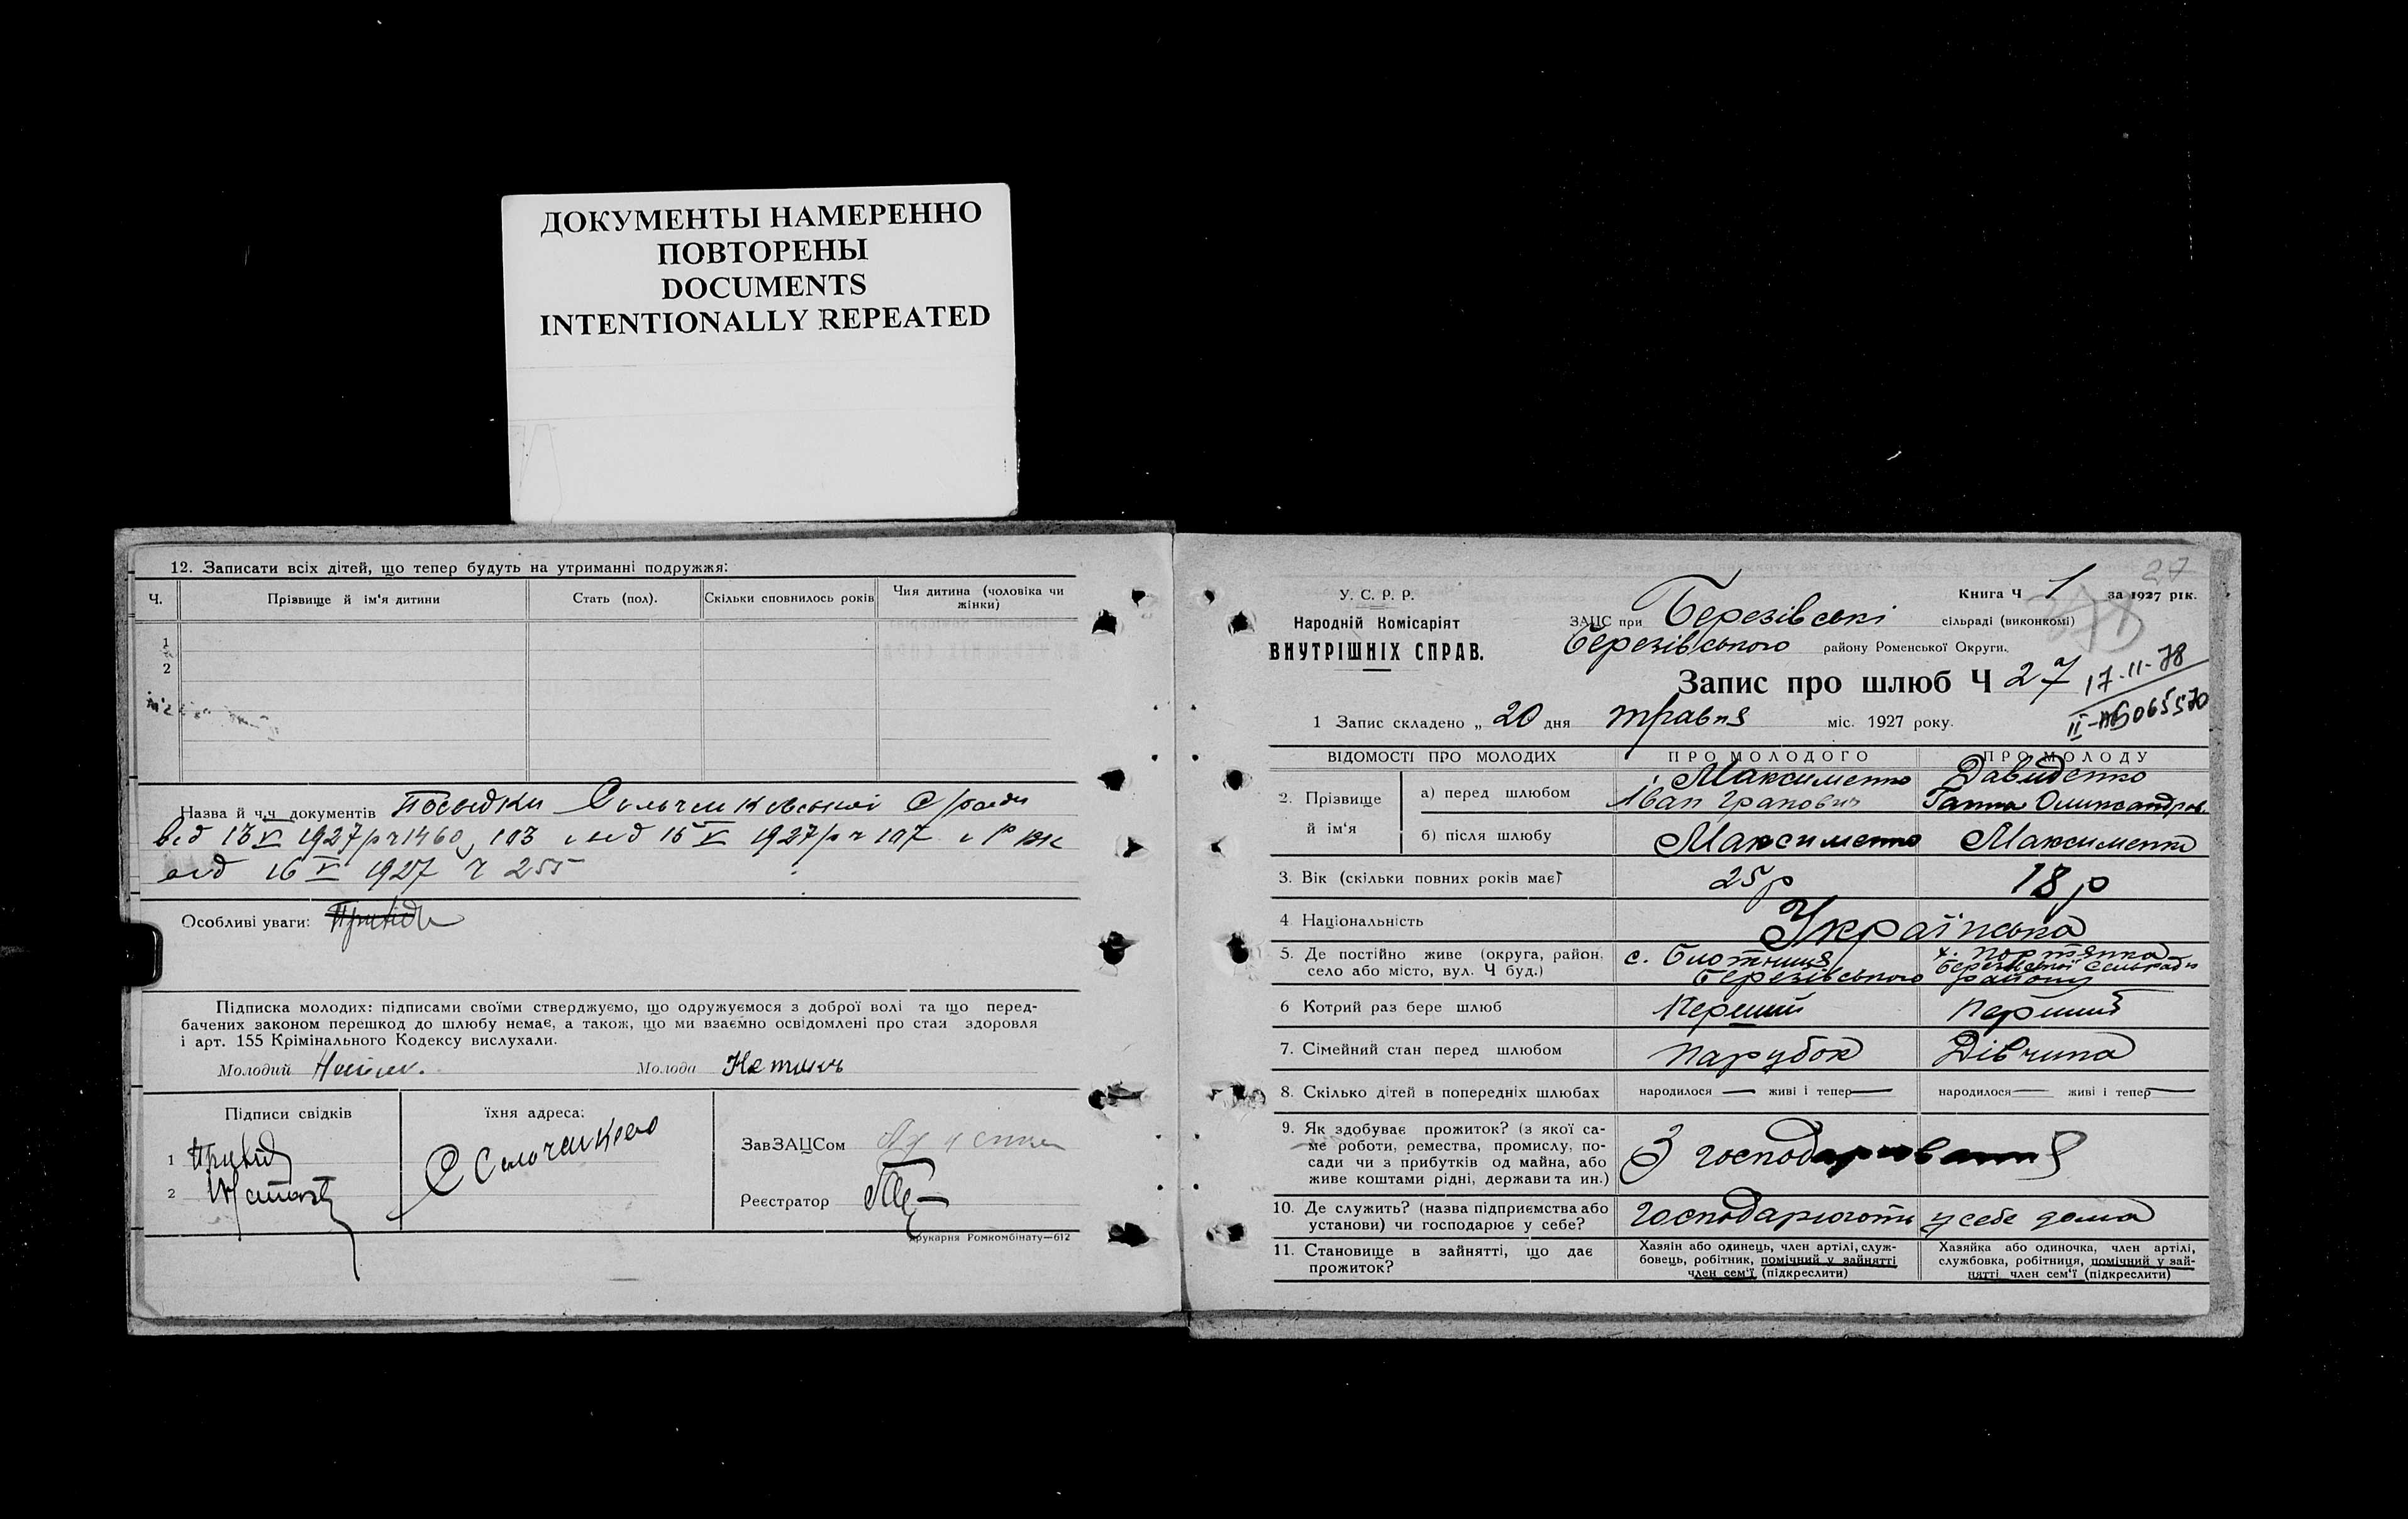 ДОКУМЕНТЫ НАМЕРЕННО
ПОВТОРЕНЫ
DOCUMENTS
INTENTIONALLY REPEATED
12. Записати всіх дітей, що тепер будуть на утриманні подружжя:
Ч.
Прізвище й ім'я дитини
Стать (пол).
Скільки сповнилось років
Чия дитина (чоловіка чи жінки)
1
2
Назва й ч.ч документів Посвідки
від 13 V 1927 р ч 1460, 103 і від 16 V 1927 р ч 107 і Р ВК
від 16 V 1927 ч 255
Особливі уваги:
Підписка молодих: підписами своїми стверджуємо, що одружуємося з доброї волі та що перед-
бачених законом перешкод до шлюбу немає, а також, що ми взаємно освідомлені про стан здоровля
і арт. 155 Крімінального Кодексу вислухали.
Молодий
Молода
Підписи свідків
їхня адреса:
1
2
ЗавЗАЦСом
Реєстратор
Друкарня Ромкомбінату—612
27
У. С. Р. Р.
Народній Комісаріят
ВНУТРІШНІХ СПРАВ.
Книга Ч 1 за 1927 рік.
ЗАЦС при Березівські сільраді (виконкомі)
Березівського району Роменської Округи.
Запис про шлюб Ч 27
17-11-78
II-АБ 065570
1 Запис складено „ 20 дня травня міс. 1927 року.
ВІДОМОСТІ ПРО МОЛОДИХ
ПРО МОЛОДОГО
ПРО МОЛОДУ
2. Прізвище й ім'я
а) перед шлюбом
Максименко
Іван
Давиденко
Ганна Олександров.
б) після шлюбу
Максименко
Максименко
3. Вік (скільки повних років має)
25 р
18 р
4. Національність
Українська
5. Де постійно живе (округа, район,
село або місто, вул. Ч буд.)
с. Биотниця
Березівського району
х. Портянка
Березівської Сельради
6 Котрий раз бере шлюб
Перший
Перший
7. Сімейний стан перед шлюбом
Парубок
Дівчина
8. Скілько дітей в попередніх шлюбах
народилося — живі і тепер —
народилося — живі і тепер —
9. Як здобуває прожиток? (з якої са-
ме роботи, ремества, промислу, по-
сади чи з прибутків од майна, або
живе коштами рідні, держави та ин.)
З господарювання
10. Де служить? (назва підприємства або
установи) чи господарює у себе?
господарюють у себе дома
11. Становище в зайнятті, що дає
прожиток?
Хазяін або одинець, член артілі, служ-
бовець, робітник, помічний у зайнятті
член сем'ї (підкреслити)
Хазяйка або одиночка, член артілі,
службовка, робітниця, помічний у зай-
нятті член сем'ї (підкреслити)